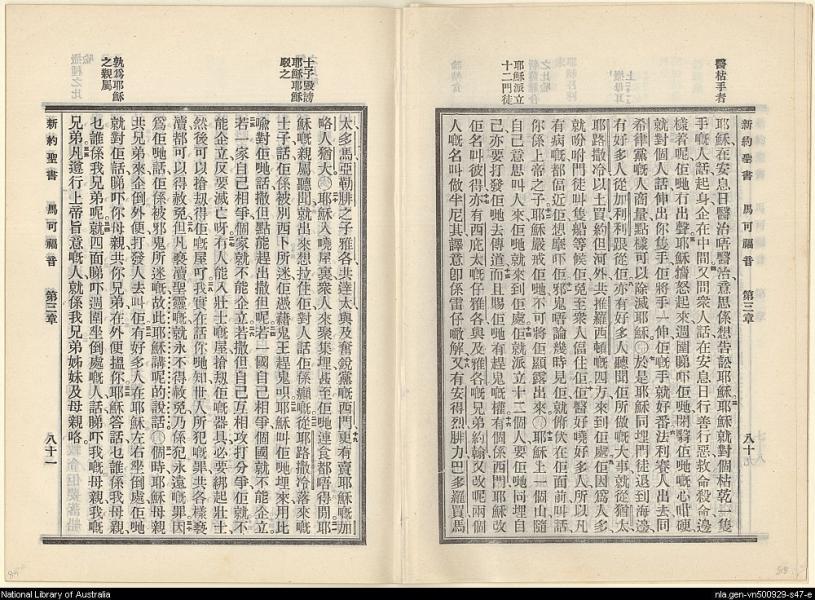 醫枯手者
耶穌派立
十二門徒
新約聖書 馬可福音 第三章 八十
耶穌在安息日醫治唔醫治意思係想告訟耶穌耶穌就對個枯乾一隻
手嘅人話起身企在中間又問衆人話在安息日行善行惡救命殺命邊
樣着呢佢哋冇出聲耶穌
就對個人話伸出你隻手佢將手一伸佢嘅手就好番法利賽人出去同
希律黨嘅人商量點樣可以除滅耶穌〇於是耶穌同埋門徒退到海邊
有好多人從加利利跟從佢亦有好多人聽聞佢所做嘅大事就從猶太
耶路撒冷以土買約但河外共推羅西頓嘅四方來到佢處佢因爲人多
就吩咐門徒叫隻船等候佢免至衆人偪住佢佢醫好嘵好多人所以凡
有病嘅都偪近佢想摩吓佢邪鬼唔論幾時見佢就俯伏在佢面前叫話
你係上帝之子耶穌嚴戒佢哋不可將佢顯露出來〇耶穌上一個山隨
自己意思叫人來佢哋就來到佢處佢就派立十二個人要佢哋同埋自
己亦要打發佢哋去傳道而且賜佢哋有趕鬼嘅權有個係西門耶穌改
佢名叫彼得亦有西庇太嘅仔雅各與及雅各嘅兄弟約翰又改呢兩個
人嘅名叫做半尼其譯意卽係雷仔嘅解又有安得烈腓力巴多羅買馬
士子毀謗
耶穌耶穌
駁之
孰爲耶穌
之親屬
太多馬亞勒腓之子雅各共達太與及奮銳黨嘅西門更有賣耶穌嘅加
略人猶大〇耶穌入嘵屋裏衆人來聚集埋甚至佢哋連食都唔得閒耶
穌嘅親屬聽聞就出來想拉住佢對人話佢係癲嘅從耶路撒冷落來嘅
士子話佢係被別西卜所迷佢憑藉鬼王趕鬼呮耶穌叫佢哋埋來用比
喻對佢哋話撒但點能趕出撒但呢若一國自己相爭個國就不能企立
若一家自己相爭個家就不能企立若撒但自己互相攻打分爭佢就不
能企立反要滅亡呀冇人能入壯士嘅屋搶刼佢嘅器具必要綁起壯士
然後可以搶刼得佢嘅屋呵我實在話你哋知世人所犯嘅罪共各樣褻
瀆都可以得赦免但凡褻瀆聖靈嘅就永不得赦免乃係犯永遠嘅罪因
爲佢哋話佢係被邪鬼所迷嘅故此耶穌講呢的說話〇個時耶穌母親
共兄弟來企倒外便打發人去叫佢有好多人在耶穌左右坐倒處佢哋
就對佢話睇吓你母親共你兄弟在外便搵你耶穌答話乜誰係我母親
乜誰係我兄弟呢就四面睇吓週圍坐倒處嘅人話睇吓我嘅母親我嘅
兄弟凡遵行上帝旨意嘅人就係我兄弟姊妹及母親略
新約聖書 馬可福音 第三章 八十一
National Library of Australia
nla.gen-vn500929-s47-e